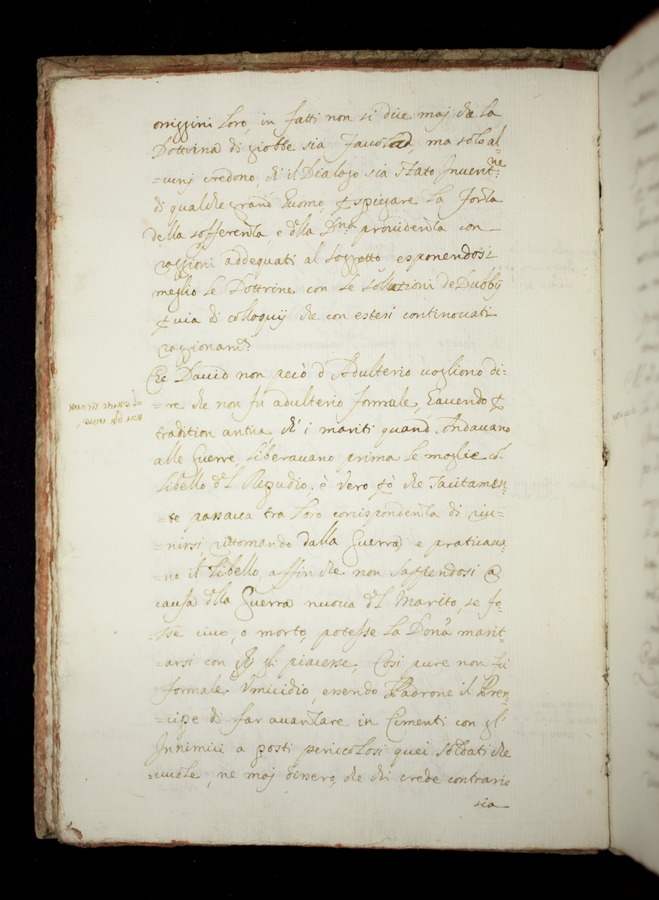 origgini loro, in fatti non si dice maj che la
Dottrina di giobbe sia favolosa, ma solo al-
=cunj credono, ch' il Dialogo sia stato Invent:ne
di qualche grand huomo, p spiegare la forza
della sofferenza e dlla Dna providenza con
raggioni addequati al soggetto esponendosi
meglio le Dottrine con le sollutioni de Dubbij
p via di colloquij che con estesi continovati
raggionamti
Che David non peccò d'Adulterio vogliono di:
=re che non fu adulterio formale, havendo p
tradition antica ch' i mariti quand. Andavano
alle Guerre liberavano prima le moglie co'
libello dl Repudio. è vero pò che tacitamen=
=te passava tra loro corrispondenza di riu=
=nirsi, ritornando dalla Guerra, e praticava=
=no il libello, affin che non sapendosi a
causa dlla Guerra nuova dl Marito, se fo=
=sse vivo, o morto, potesse la Dona marit=
=arsi con chi gli piacesse, Cosi pure non fu
formale Umicidio, essendo Padrone il Pren=
=cipe di far avanzare in Cimenti con gl'
Innimici a posti pericolosi quei soldati che
=vuole, ne maj dissero, che chi crede contrario
sia